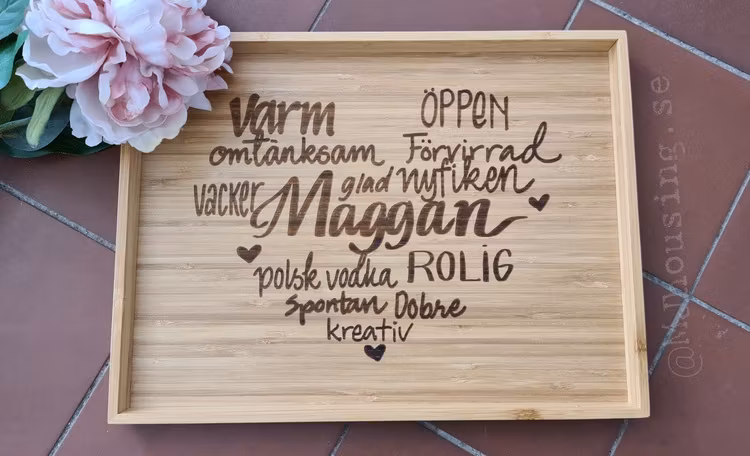 varm ÖPPEN
omtänksam Förvirrad
vacker glad nyfiken
Maggan
polsk vodka ROLIG
spontan Dobre
kreativ